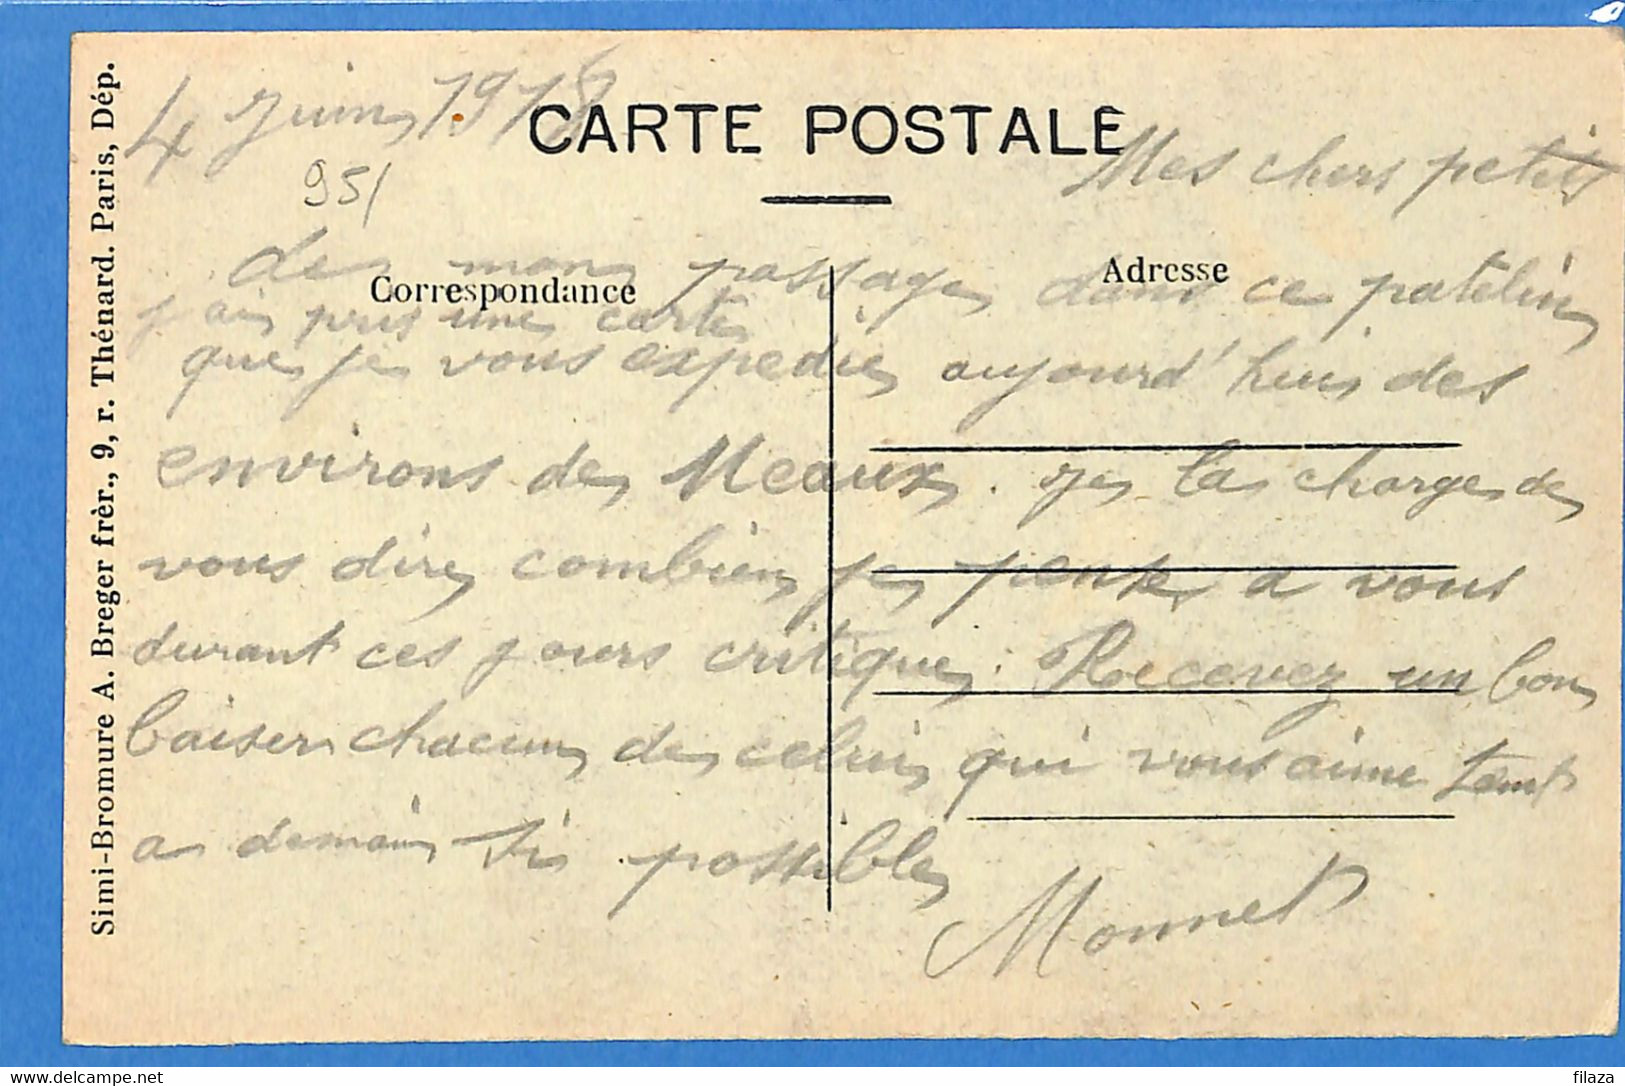 4 juin 1918
CARTE POSTALE
951
Mes chers petits
Correspondance
Adresse
de mon passage dans ce patelin
j ai pris une carte
que je vous expedie aujourd'hui des
environs de Meaux. je la charge de
vous dire combien je pense a vous
durant ces jours critique. Recevez un bon
baiser chacun de celui qui vous aime tant
a demain si possible
Monnet
Simi-Bromure A. Breger frèr., 9, r. Thénard. Paris, Dép.
www.delcampe.net
filaza